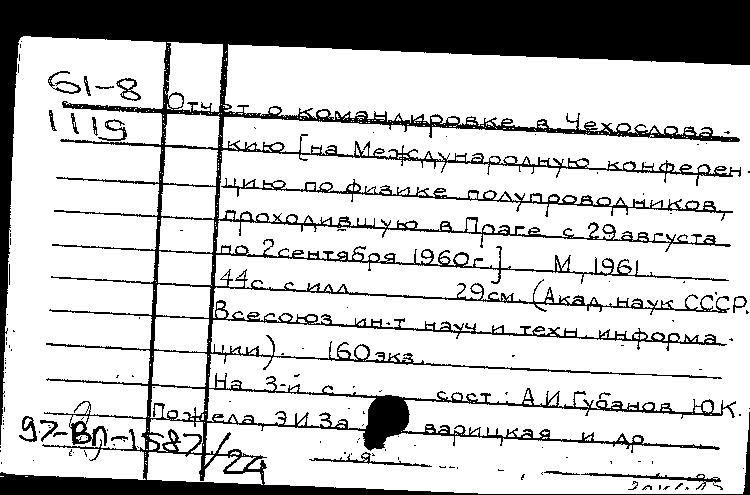 61-8
1119
Отчет о командировке в Чехослова-
кию [на Международную конферен-
цию по физике полупроводников,
проходившую в Праге с 29 августа
по 2 сентября 1960г.] М, 1961.
44с. с илл. 29см. (Акад. наук СССР.
Всесоюз. ин-т науч и техн. информа-
ции). 160 экз.
На 3-й с.: сост.: А.И. Губанов, Ю.К.
Пожела, Э.И. За варицкая и др.
97-ВП-1587/24